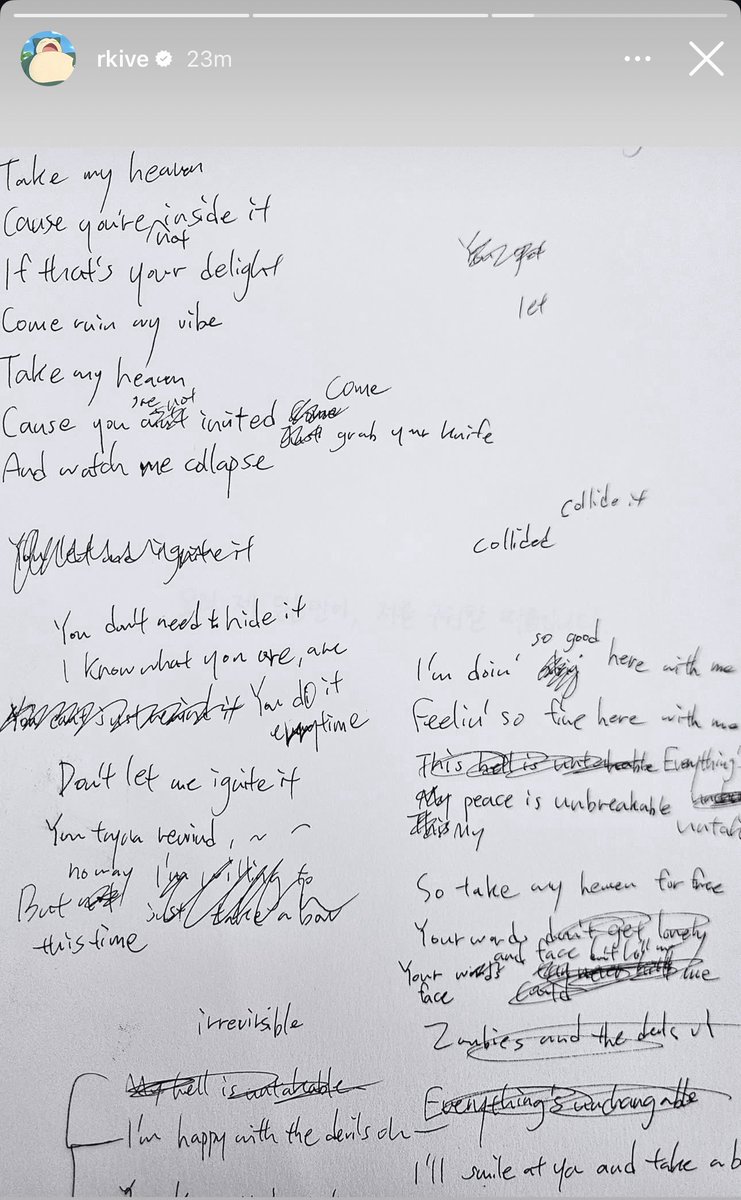 rkive 23m
Take my heaven
Cause you're not inside it
If that's your delight
Come ruin my vibe
Take my heaven
Cause you 're not invited Come grab your knife
And watch me collapse
You got
let
collide it
collided
ignite it
You don't need to hide it
I know what you are, are
You can't just rewind it You do it
everytime
Don't let me ignite it
You tryna rewind, ~ ~
no way I'm willing to
But just take a bow
this time
irrevirsible
My hell is untakable
I'm happy with the devils oh
so good
I'm doin' here with me
Feelin' so fine here with me
This hell is untakable Everything's
My peace is unbreakable
This My untak
So take my heaven for free
Your words don't get lonely
and face
Your words me
face could
Zombies and the devils
Everything's unchangable
I'll smile at ya and take a b